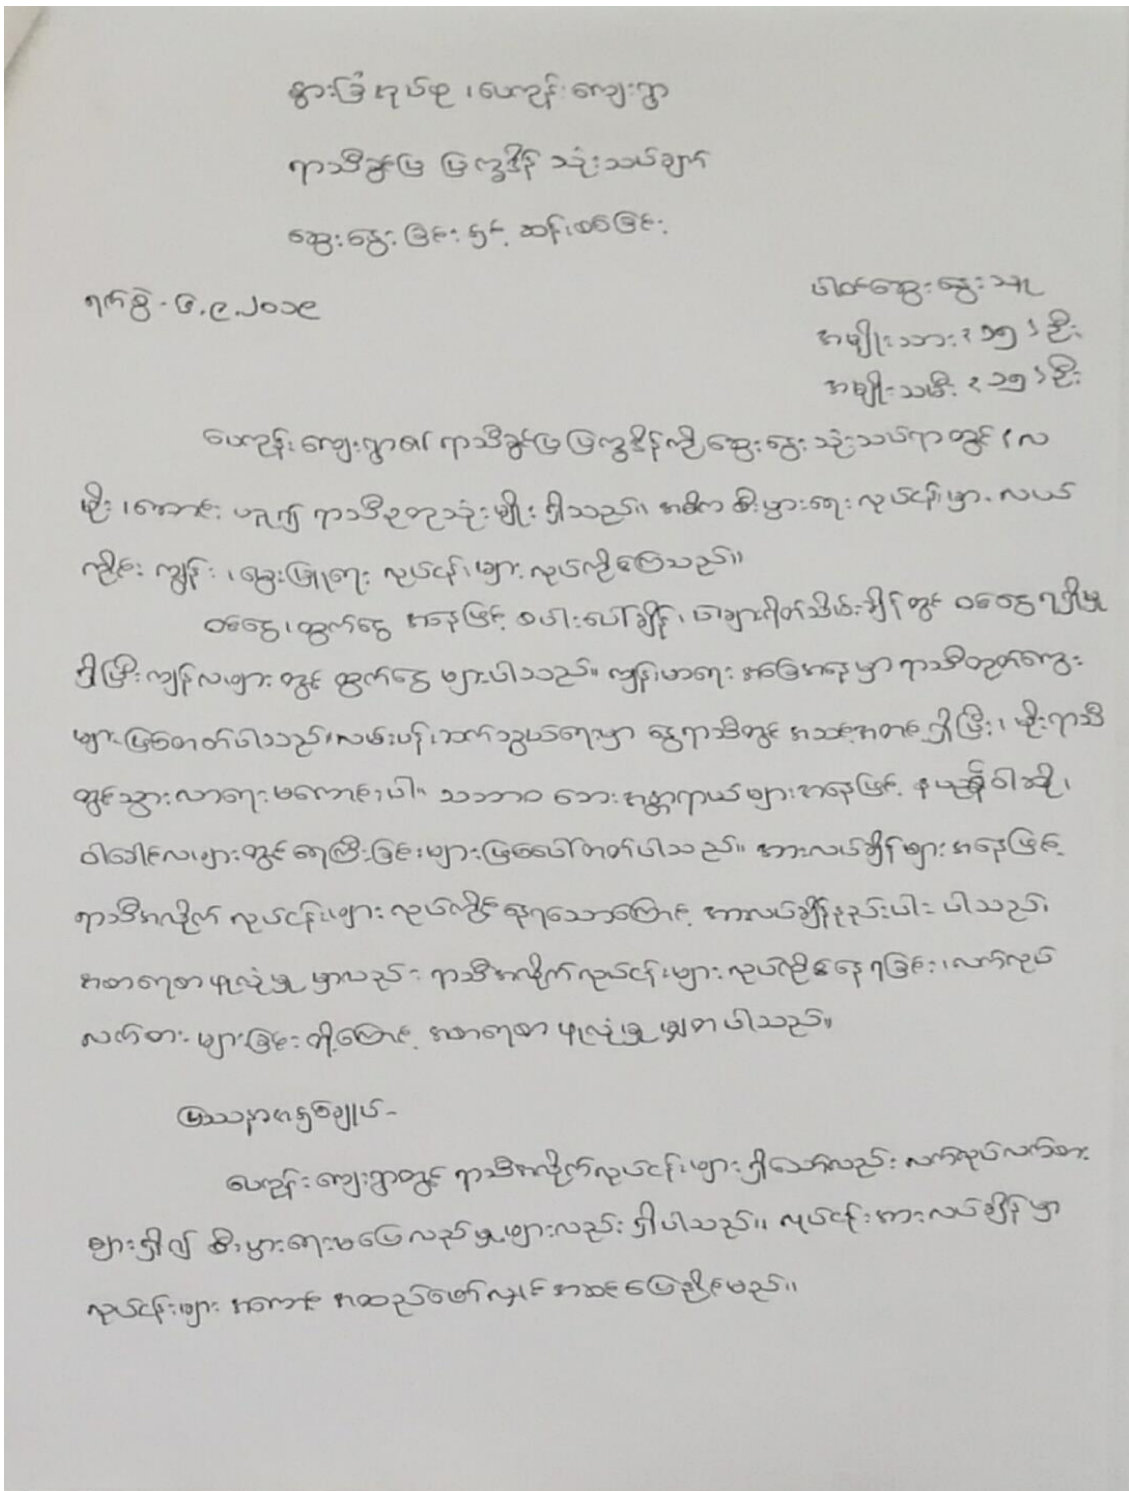 နွားခြံအုပ်စု ၊ ပေကုန်းကျေးရွာ
ရာသီခွင်ပြ ပြက္ခဒိန် သုံးသပ်ချက်
ဆွေးနွေးခြင်းနှင့် ဆန်းစစ်ခြင်း
ရက်စွဲ - ၆.၉.၂၀၁၉
ပါဝင်ဆွေးနွေးသူ
အမျိုးသား (၁၅) ဦး
အမျိုးသမီး (၁၅) ဦး
ပေကုန်းကျေးရွာ၏ ရာသီခွင်ပြ ပြက္ခဒိန်ကို ဆွေးနွေးသုံးသပ်ရာတွင်
မိုး၊ ဆောင်း ရာသီဥတုသုံးမျိုး ရှိသည်။ အဓိက စီးပွားရေးလုပ်ငန်းမှာ လယ်
ကိုင်းကျွန်း၊ မွေးမြူရေး လုပ်ငန်းများ လုပ်ကိုင်ကြသည်။
ဝင်ငွေ၊ ထွက်ငွေ အနေဖြင့် စပါးပေါ်ချိန်၊ ရိတ်သိမ်းချိန်တွင် ဝင်ငွေရရှိမှု
ရှိပြီး ကျန်လများတွင် ထွက်ငွေ များပါသည်။ ကျန်းမာရေး အခြေအနေမှာ ရာသီတုတ်ကွေး
များ ဖြစ်တတ်ပါသည်။ လမ်းပန်းဆက်သွယ်ရေးမှာ နွေရာသီတွင် အသင့်အတင့် ရှိပြီး၊ မိုးရာသီ
တွင် သွားလာရေး မကောင်းပါ။ သဘာဝ ဘေးအန္တရာယ်များအနေဖြင့် နယုန်၊ ဝါဆို၊
ဝါခေါင်လများတွင် ရေကြီးခြင်းများ ဖြစ်ပေါ်တတ်ပါသည်။ အားလပ်ချိန်များ အနေဖြင့်
ရာသီအလိုက် လုပ်ငန်းများ လုပ်ကိုင်နေရသောကြောင့် အားလပ်ချိန်နည်းပါး ပါသည်၊
အစာရေစာ ဖူလုံမှု မှာလည်း ရာသီအလိုက်လုပ်ငန်းများ လုပ်ကိုင်နေရခြင်း၊ လက်လုပ်
လက်စား များခြင်းတို့ကြောင့် အစာရေစာ ဖူလုံမှု မျှတပါသည်။
ပြဿနာအနှစ်ချုပ်-
ပေကုန်းကျေးရွာတွင် ရာသီအလိုက်လုပ်ငန်းများ ရှိသော်လည်း လက်လုပ်လက်စား
များရှိ၍ စီးပွားရေးမပြေလည်မှုများလည်း ရှိပါသည်။ လုပ်ငန်းအားလပ်ချိန်မှာ
လုပ်ငန်းများ အကောင် အထည်ဖော်လျှင် အဆင်ပြေနိုင်မည်။